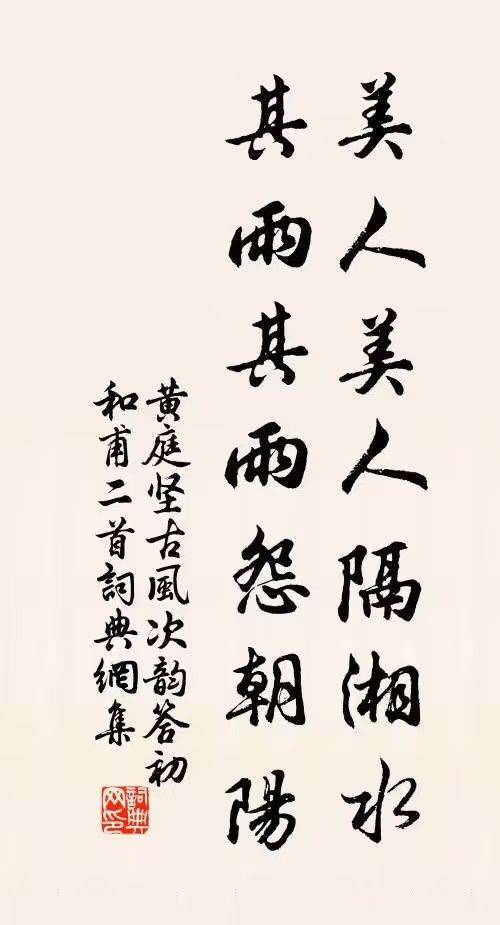 美人美人隔湘水
其雨其雨怨朝陽
黄庭坚古風次韵答初
和甫二首詞典網集
詞典网印